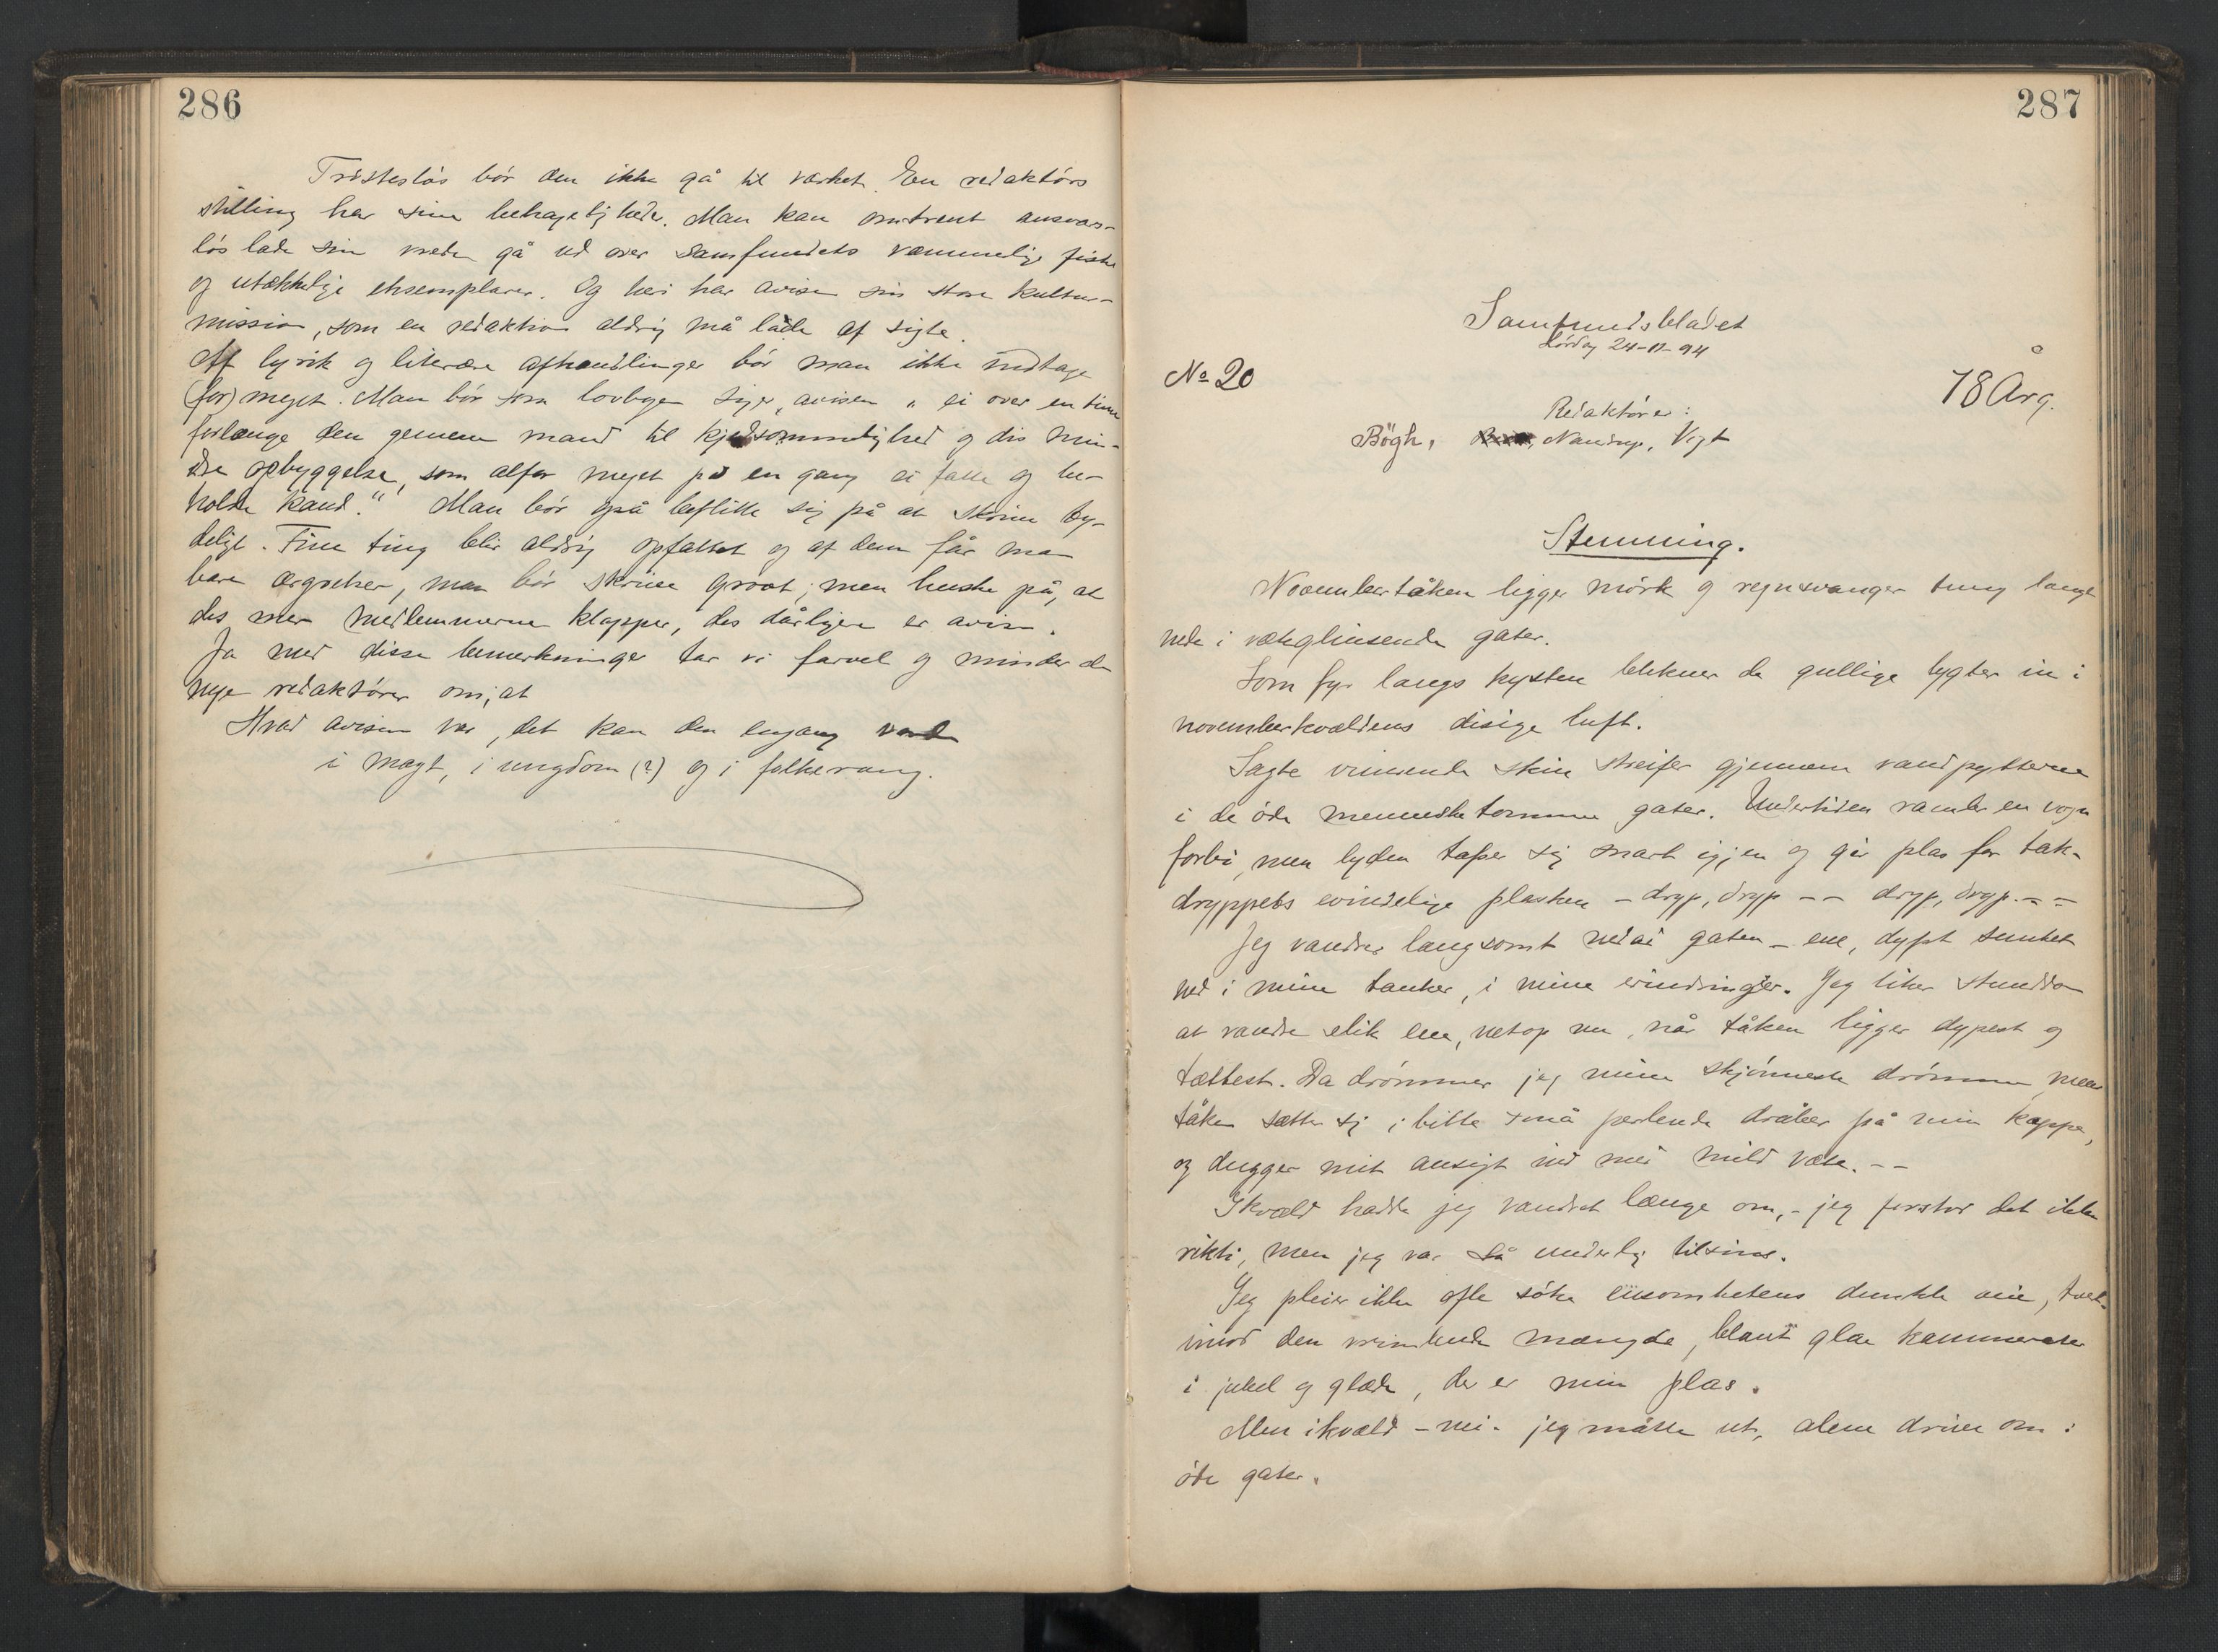 286
Trøstesløs bør den ikke gå til verket. En redaktørs
stilling har sine behageligheder. Man kan omtrent ansvars-
løs lade sin vrede gå ud over samfundets væmmelige fiske
og utækkelige eksemplarer. Og heri har avisen sin store kultur-
mission, som en redaktion aldrig må lade af sigte.
Af lyrik og literære afhandlinger bør man ikke indtage
(for) meget. Man bør som lovbogen siger, avisen "ei over en time
forlænge den gemene mand til kjedsommelighed og dis min-
dre opbyggelse, som alfor meget på en gang ei fatte og be-
holde kand." Man bør også beflitte sig på at skrive ty-
deligt. Fine ting blir aldrig opfattet og af dem får man
bare ærgrelser, man bør skrive grovt; men huske på, at
des mer medlemmerne klapper, des dårligere er avisen.
Ja med disse bemerkninger tar vi farvel og minder de
nye redaktører om, at
Hvad avisen var, det kan den engang vorde
i magt, i ungdom (?) og i folkerang.
287
Samfundsbladet
Lørdag 24-11-94
No 20
18 Årg.
Redaktører:
Bøgh, Nandrup, Vogt
Stemning.
Novembertåken ligger mørk og regnsvanger tung langt
nede i væteglinsende gater.
Som fyr langs kysten blekner de gullige lygter in i
novemberkvældens disige luft.
Sagte vimsende skin streifer gjennem vandpytterne
i de øde mennesketomme gater. Undertiden ramler en vogn
forbi, men lyden taper sig snart igjen og gir plas for tak-
dryppets evindelige plasken - dryp, dryp -- dryp, dryp. --
Jeg vandrer langsomt nedai gaten - ene, dypt sunket
ned i mine tanker, i mine erindringer. Jeg liker stundom
at vandre slik ene, netop nu, når tåken ligger dypest og
tættest. Da drømmer jeg mine skjønneste drømme, mens
tåken sætter sig i bitte små perlende dråber på min kappe,
og dugger mit ansigt ind med mild væte. --
Ikvæld hadde jeg vandret længe om, - jeg forstod det ikke
rikti, men jeg var så underlig tilsins.
Jeg pleier ikke ofte søke ensomhetens dunkle veie, tvert-
imod den vrimlende mængde, blant glae kammerater
i jubel og glæde, der er min plas.
Men ikvæld - nei - jeg måtte ut, alene drive om i
øde gater.